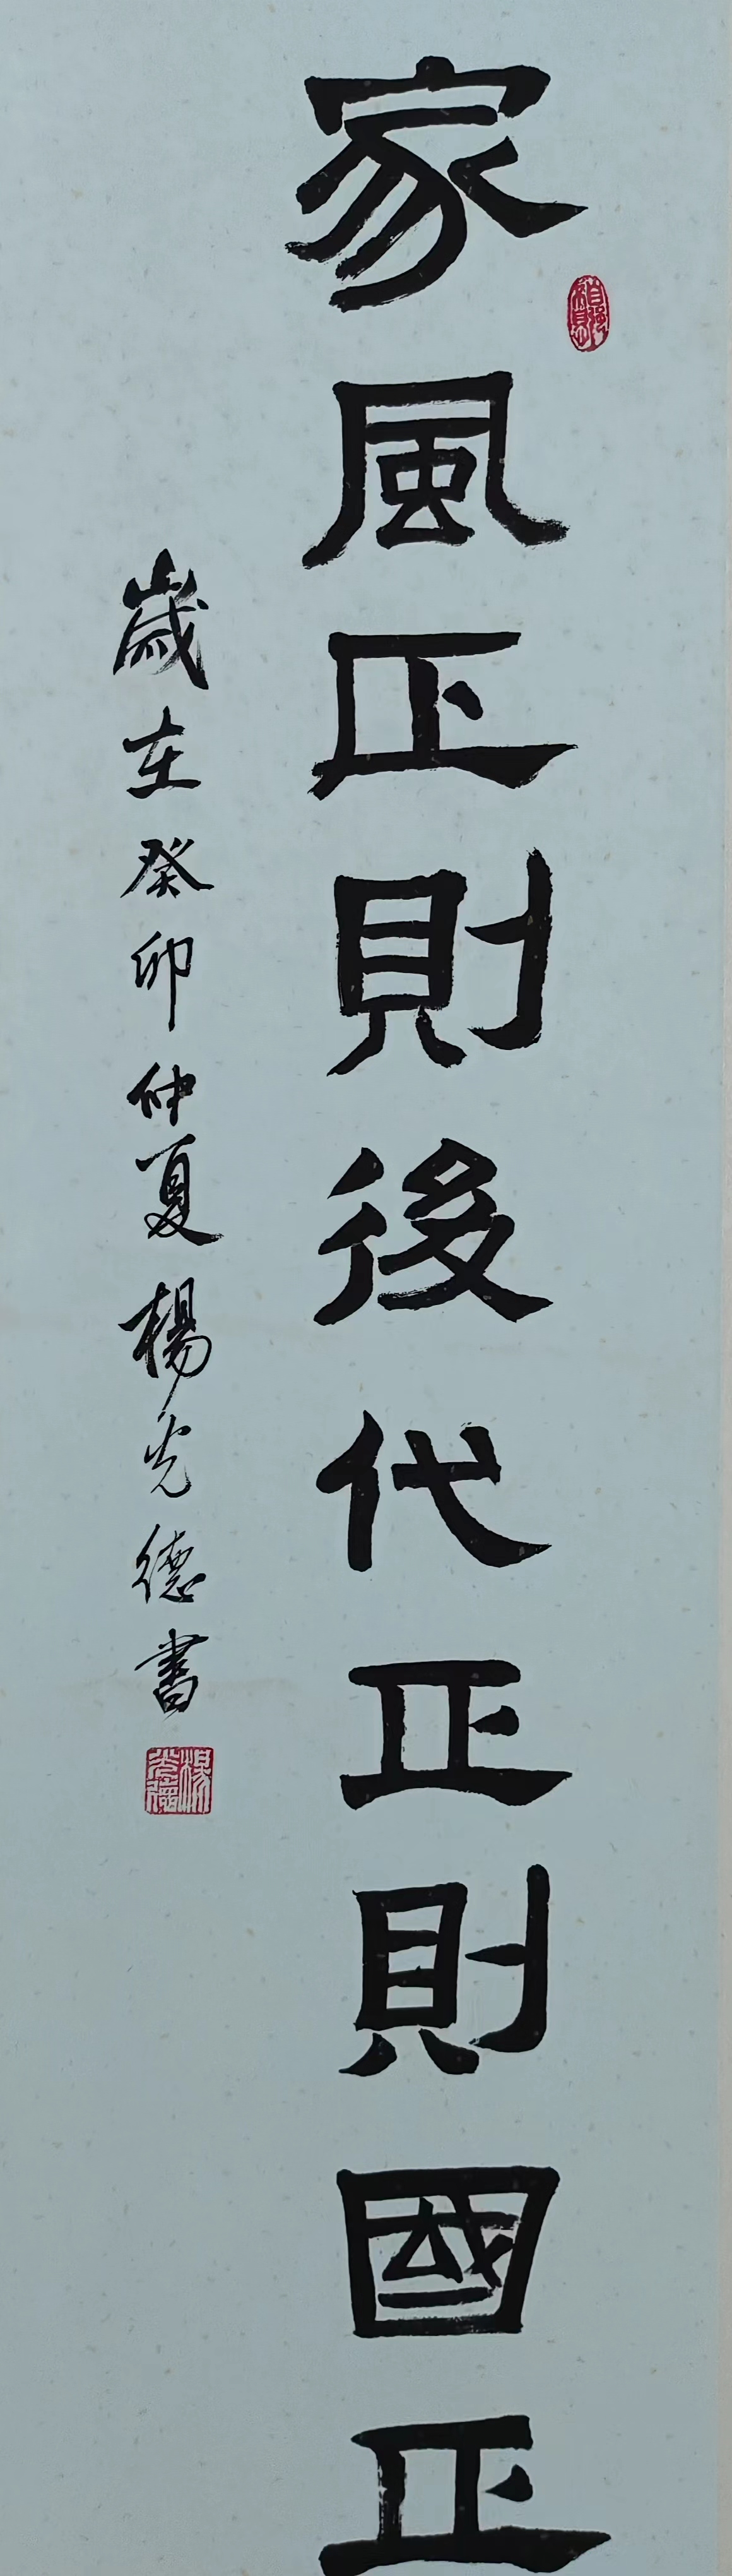 家風正則後代正則國正
歲在癸卯仲夏楊光德書
楊光德